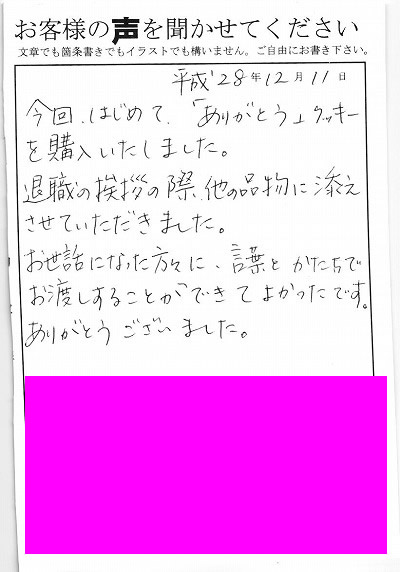 お客様の声を聞かせてください
文章でも箇条書きでもイラストでも構いません。ご自由にお書き下さい。
平成28年12月11日
今回、はじめて、「ありがとう」クッキー
を購入いたしました。
退職の挨拶の際、他の品物に添え
させていただきました。
お世話になった方々に、言葉とかたちで
お渡しすることができてよかったです。
ありがとうございました。